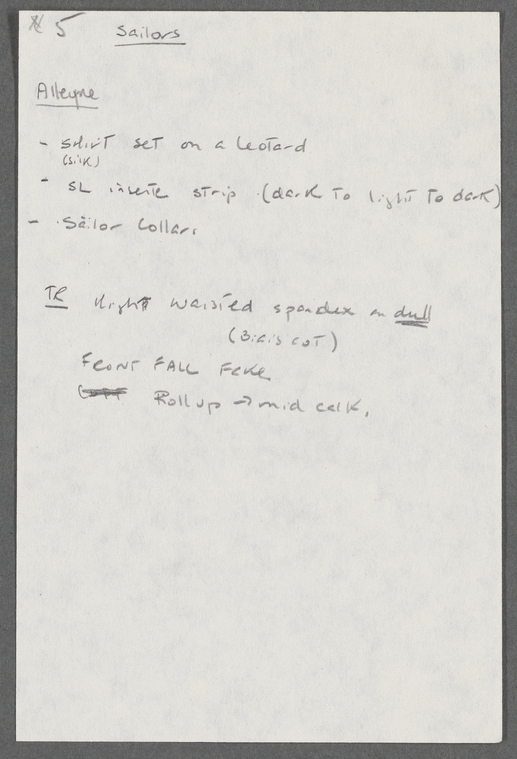 # 5 Sailors
Alleyne
- Shirt set on a leotard
(Silk)
- SL inserte strip (dark to light to dark)
- Sailor Collar.
TR Hight waisted spandex on dull
(Biais cut)
FRONT FALL Fake
Roll up → mid calk.